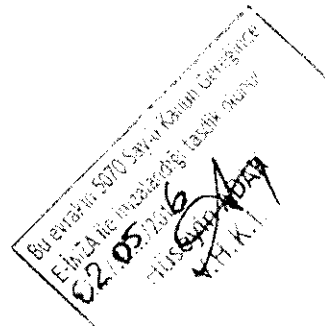 Bu evrakın 5070 Sayılı Kanun Gereğince
E-İMZA ile imzalandığı tasdik olunur
02/05/2016
Hüseyin
V.H.K.İ.